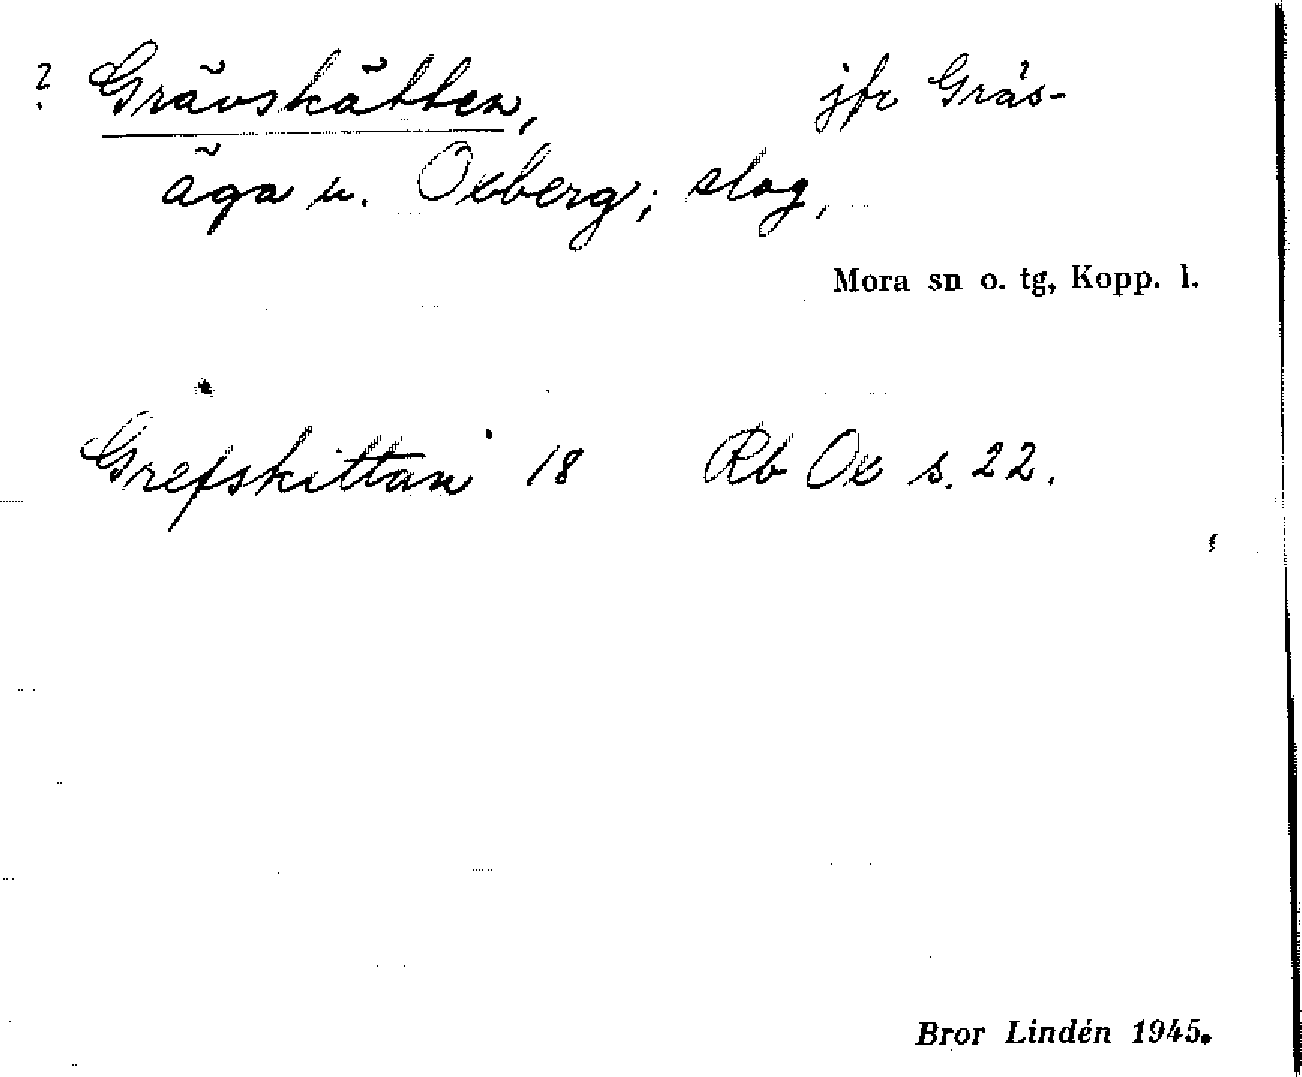 ? Grävskätten, jfr Gräs-
äga u. Oxberg; slog,
Mora sn o. tg, Kopp. l.
Grefskittan 18 Rb Ox s. 22.
Bror Lindén 1945.